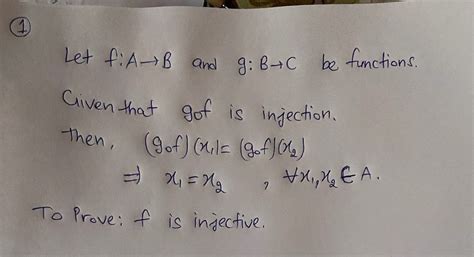 ①
Let f:A→B and g:B→C be functions.
Given that gof is injection.
Then, (gof)(x₁)=(gof)(x₂)
⇒ x₁=x₂ , ∀x₁,x₂ ∈ A.
To Prove: f is injective.